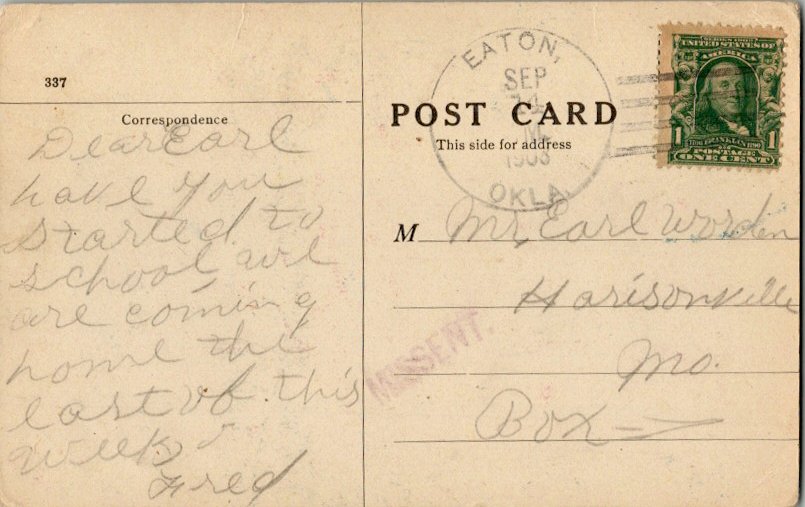 337
Correspondence
Dear Earl
have you
started to
school we
are coming
home the
last of this
week
Fred
POST CARD
This side for address
EATON,
SEP
14
M.
1908
OKLA.
SERIES 1902
UNITED STATES OF
AMERICA
1 1706 FRANKLIN 1790 1
POSTAGE
ONE CENT
M Mr. Earl Worden
Harisonville
Mo.
Box
MISSENT.